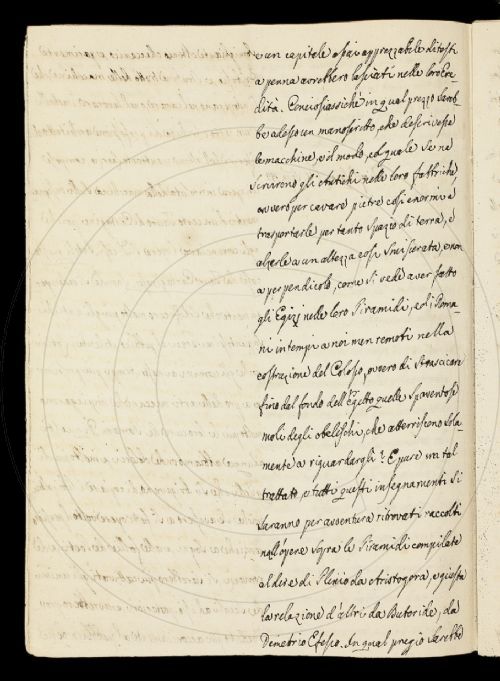 e un capitale assai apprezzabile di testi
a penna avrebbero lasciati nelle loro ere-
dità. Conciosiassiché in qual prezzo sareb-
be adesso un manoscritto, che descrivesse
le macchine, e il modo, col quale se ne
servirono gli Antichi nelle loro fabbriche
ovvero per cavare pietre così enormi e
trasportarle per tanto spazio di terra, e
alzarle a un altezza così smisurata, e non
a perpendicolo, come si vede aver fatto
gli Egizj nelle loro Piramidi, ed i Roma-
ni in tempi a noi men remoti nella
costruzione del Colosso, ovvero di strascicare
fino dal fondo dell'Egitto quelle spaventose
moli degli obelischi, che atterriscono sola-
mente a riguardargli? Eppure un tal
trattato, e tutti questi insegnamenti si
saranno per avventura ritrovati raccolti
nell'opere sopra le Piramidi compilate
al dire di Plinio da Aristagora, e giusta
la relazione d'altri da Butoride, da
Demetrio Efesio. In qual pregio sarebbe